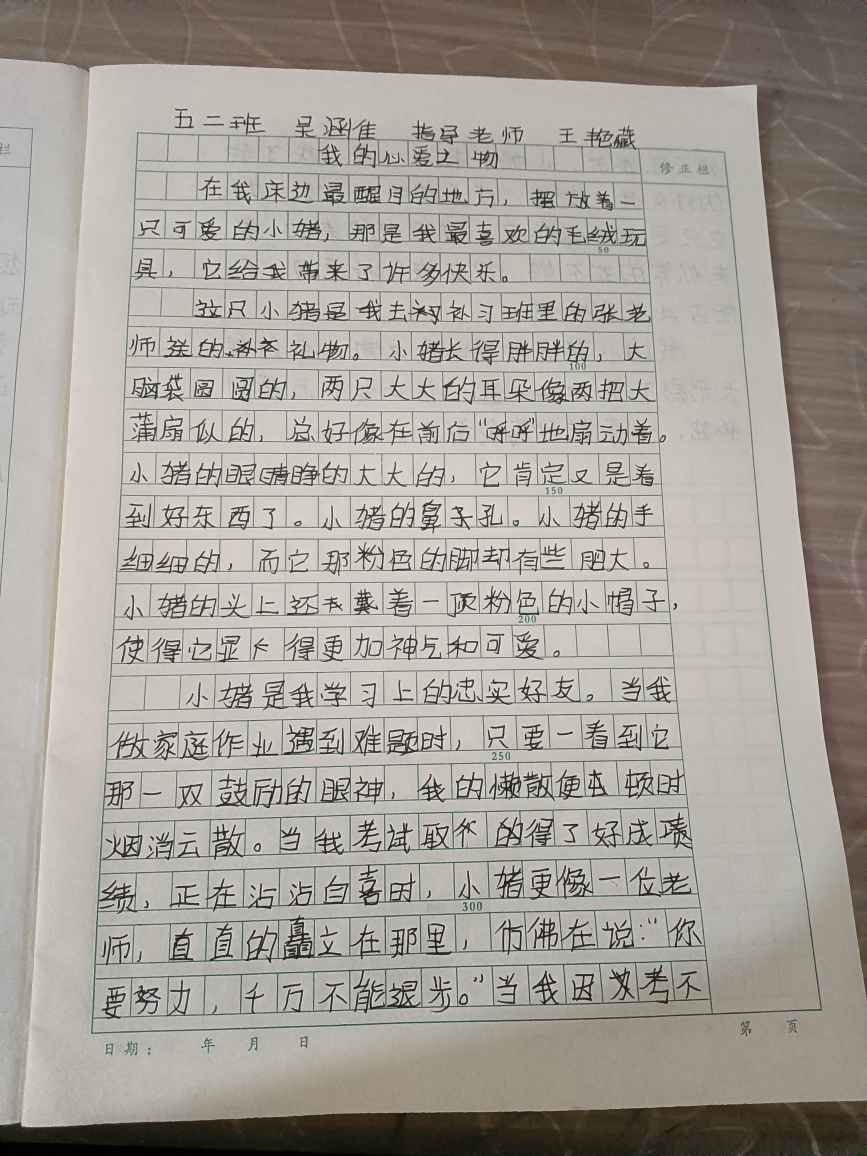 五二班 吴涵佳 指导老师 王艳藏
我的心爱之物
修正栏
在我床边最醒目的地方，摆放着一
只可爱的小猪，那是我最喜欢的毛绒玩
50
具，它给我带来了许多快乐。
这只小猪是我去补习班里的张老
师送的礼物。小猪长得胖胖的，大
100
脑袋圆圆的，两只大大的耳朵像两把大
蒲扇似的，总好像在前后“呼呼”地扇动着。
小猪的眼睛睁的大大的，它肯定又是看
150
到好东西了。小猪的鼻子孔。小猪的手
细细的，而它那粉色的脚却有些肥大。
小猪的头上还戴着一顶粉色的小帽子，
200
使得它显得更加神气和可爱。
小猪是我学习上的忠实好友。当我
做家庭作业遇到难题时，只要一看到它
250
那一双鼓励的眼神，我的懒散便顿时
烟消云散。当我考试取的得了好成
绩，正在沾沾自喜时，小猪更像一位老
300
师，直直的矗立在那里，仿佛在说：“你
要努力，千万不能退步。”当我因考不
日期： 年 月 日
第 页